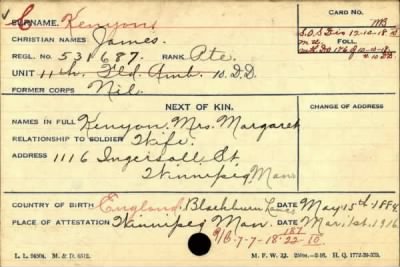 SURNAME. Kenyon
CARD NO.
CHRISTIAN NAMES James.
REGL. NO. 531687. RANK Pte.
S.O.S. Dis 12-10-18
FOLL.
UNIT 11th. Fld. Amb. 10 D.D.
FORMER CORPS Nil.
NEXT OF KIN.
CHANGE OF ADDRESS
NAMES IN FULL Kenyon, Mrs. Margaret
RELATIONSHIP TO SOLDIER Wife.
ADDRESS 1116 Ingersoll St.
Winnipeg, Man.
COUNTRY OF BIRTH England, Blackburn Lancs DATE May 15th. 1884
PLACE OF ATTESTATION Winnipeg Man. DATE Mar. 1st. 1916
187
7-7-18. 22-10
L. L. 94504. M. & D. 6512.
M. F. W. 22.
H.Q. 1772-39-339.